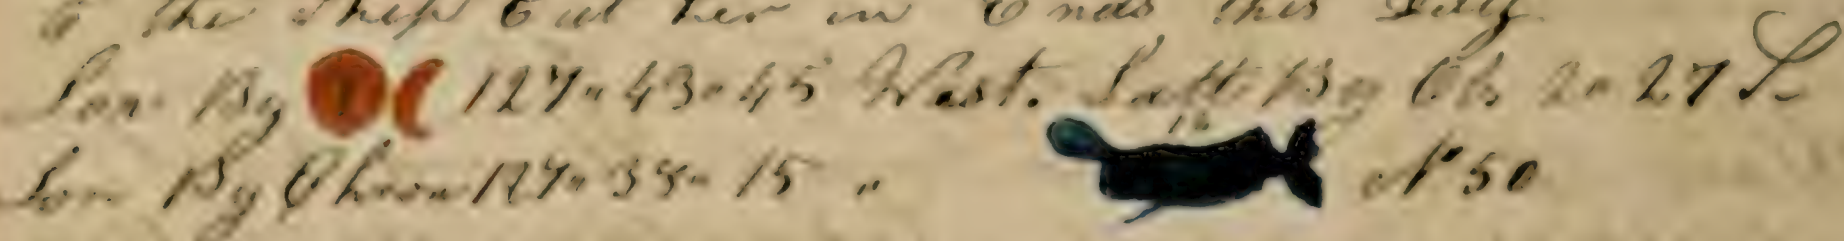 to the Ship Cut her in Ends this Day
Lon By 127" 43" 45 West. Latt By Ob 2" 27 S.
Lon By Chron 127" 38" 15 " N° 50